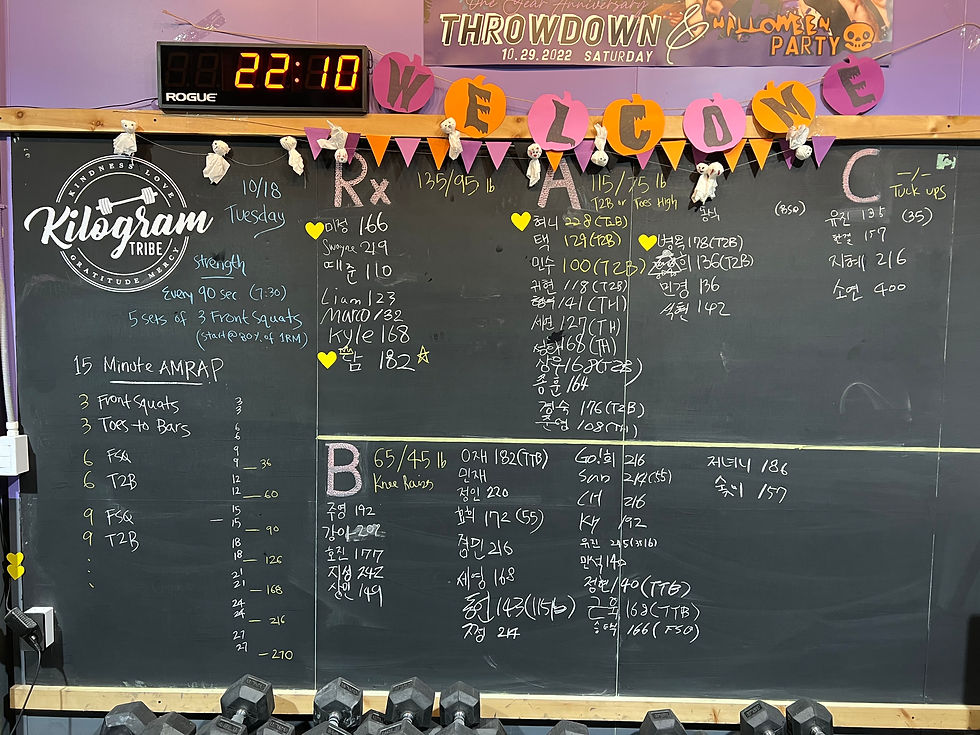 One Year Anniversary
THROWDOWN &
HALLOWEEN
PARTY
10.29.2022 SATURDAY
22:10
ROGUE
WELCOME
KINDNESS LOVE
Kilogram
TRIBE
GRATITUDE MERCY
10/18
Tuesday
Strength
Every 90 sec (7:30)
5 sets of 3 Front Squats
(Start@80% of 1RM)
15 Minute AMRAP
3 Front Squats
3 Toes to Bars
6 FSQ
6 T2B
9 FSQ
9 T2B
3
3
6
6
9
9 - 36
12
12 - 60
15
15 - 90
18
18 - 126
21
21 - 168
24
24 - 216
27
27 - 270
Rx 135/95 lb
미정 166
Swayne 219
태준 110
Liam 123
Marco 132
Kyle 168
람 182
A 115/75 lb
T2B or Toes High
허니 228 (T2B)
택 129 (T2B)
민수 100 (T2B)
귀현 118 (T2B)
141 (TH)
세련 127 (TH)
168 (TH)
상우 168 (T2B)
종훈 164
경숙 176 (T2B)
준영 108 (TH)
동식
병욱 178 (T2B)
136 (T2B)
민경 136
석현 142
C -/-
Tuck ups
유진 135 (35)
한결 157
지혜 216
소연 400
B 65/45 lb
Knee Raises
주영 192
강아 202
호진 177
지성 242
상민 149
이재 182 (TTB)
민재
정인 220
효희 172 (55)
정민 216
세영 168
동현 143 (115lb)
지정 214
Go!희 216
Sub 214 (55)
CH 216
KH 192
유진 245 (35lb)
만석 140
정현 140 (TTB)
근욱 168 (TTB)
승택 166 (FSQ)
저녀니 186
숙이 157